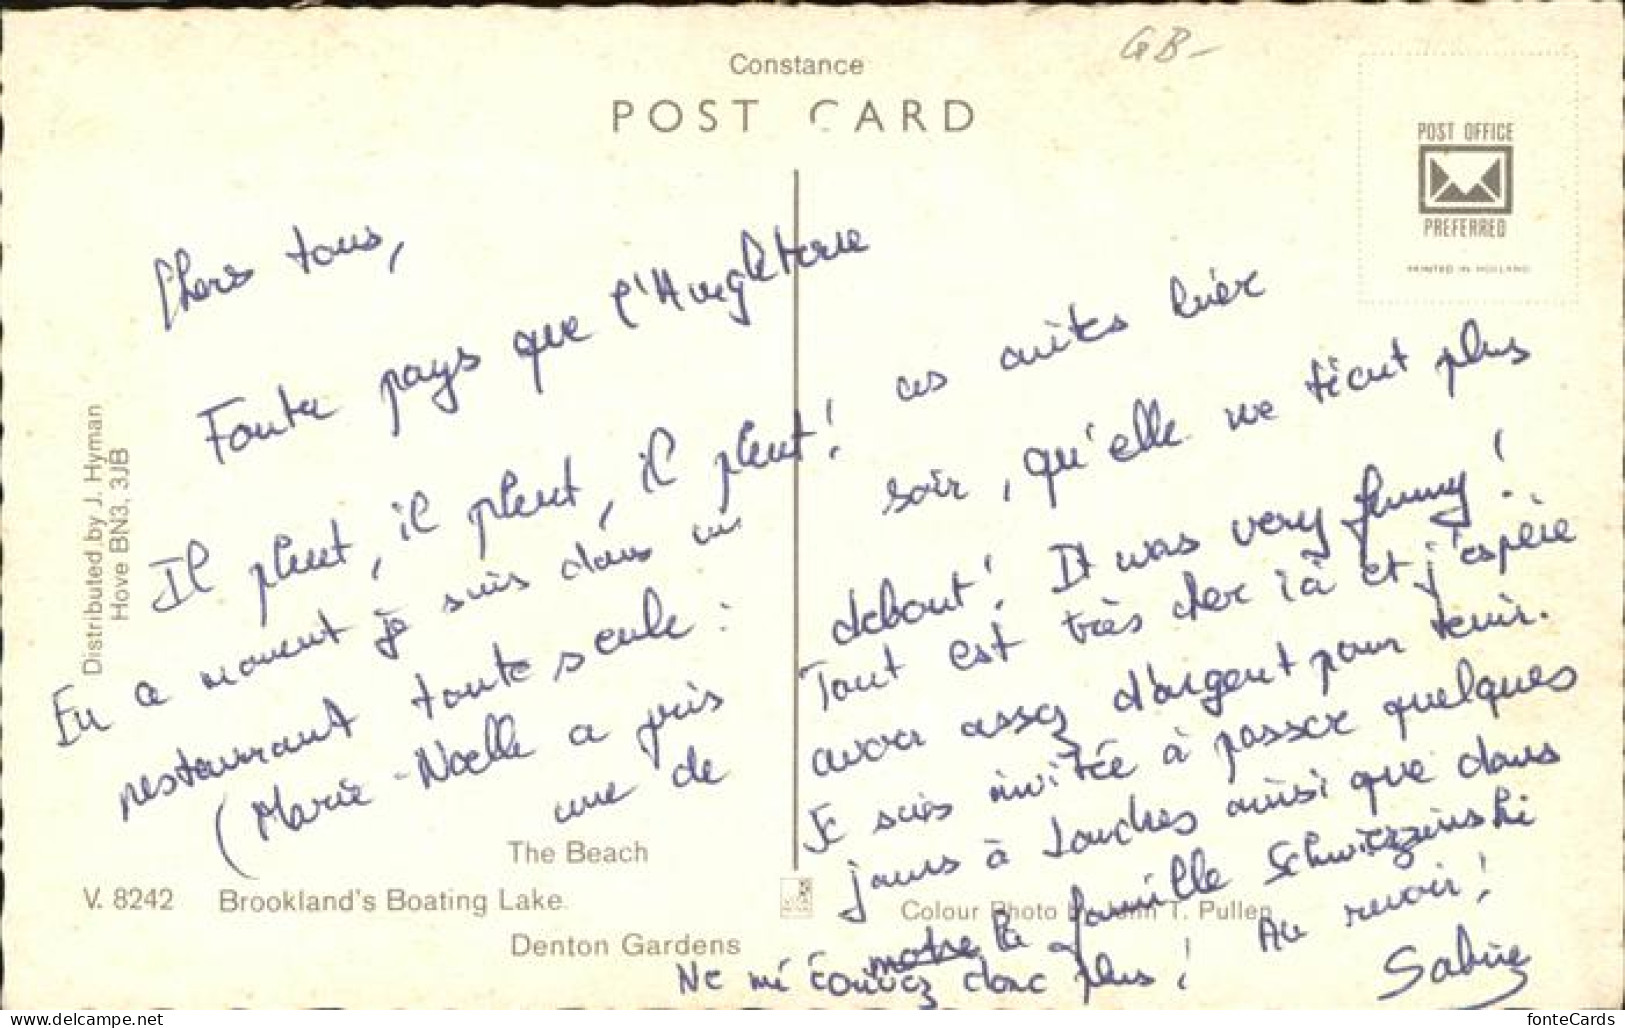 GB-
Constance
POST CARD
POST OFFICE
PREFERRED
PRINTED IN HOLLAND
Distributed by J. Hyman
Hove BN3, 3JB
Chers tous,
Foutu pays que l'Angleterre
Il pleut, il pleut, il pleut!
En ce moment je suis dans un
restaurant toute seule :
(Marie-Noelle a pris
une de
ces cuites hier
soir, qu'elle ne tient plus
debout! It was very funny!
Tout est très cher ià et j'espère
avoir assez d'argent pour tenir.
Je suis invitée à passer quelques
jours à Londres ainsi que dans
la famille Schwiezzinski
Ne m'écrivez donc plus! Au revoir!
Sabine
The Beach
V. 8242 Brookland's Boating Lake.
Denton Gardens
Colour Photo by John T. Pullen
fonteCards
https://www.delcampe.net